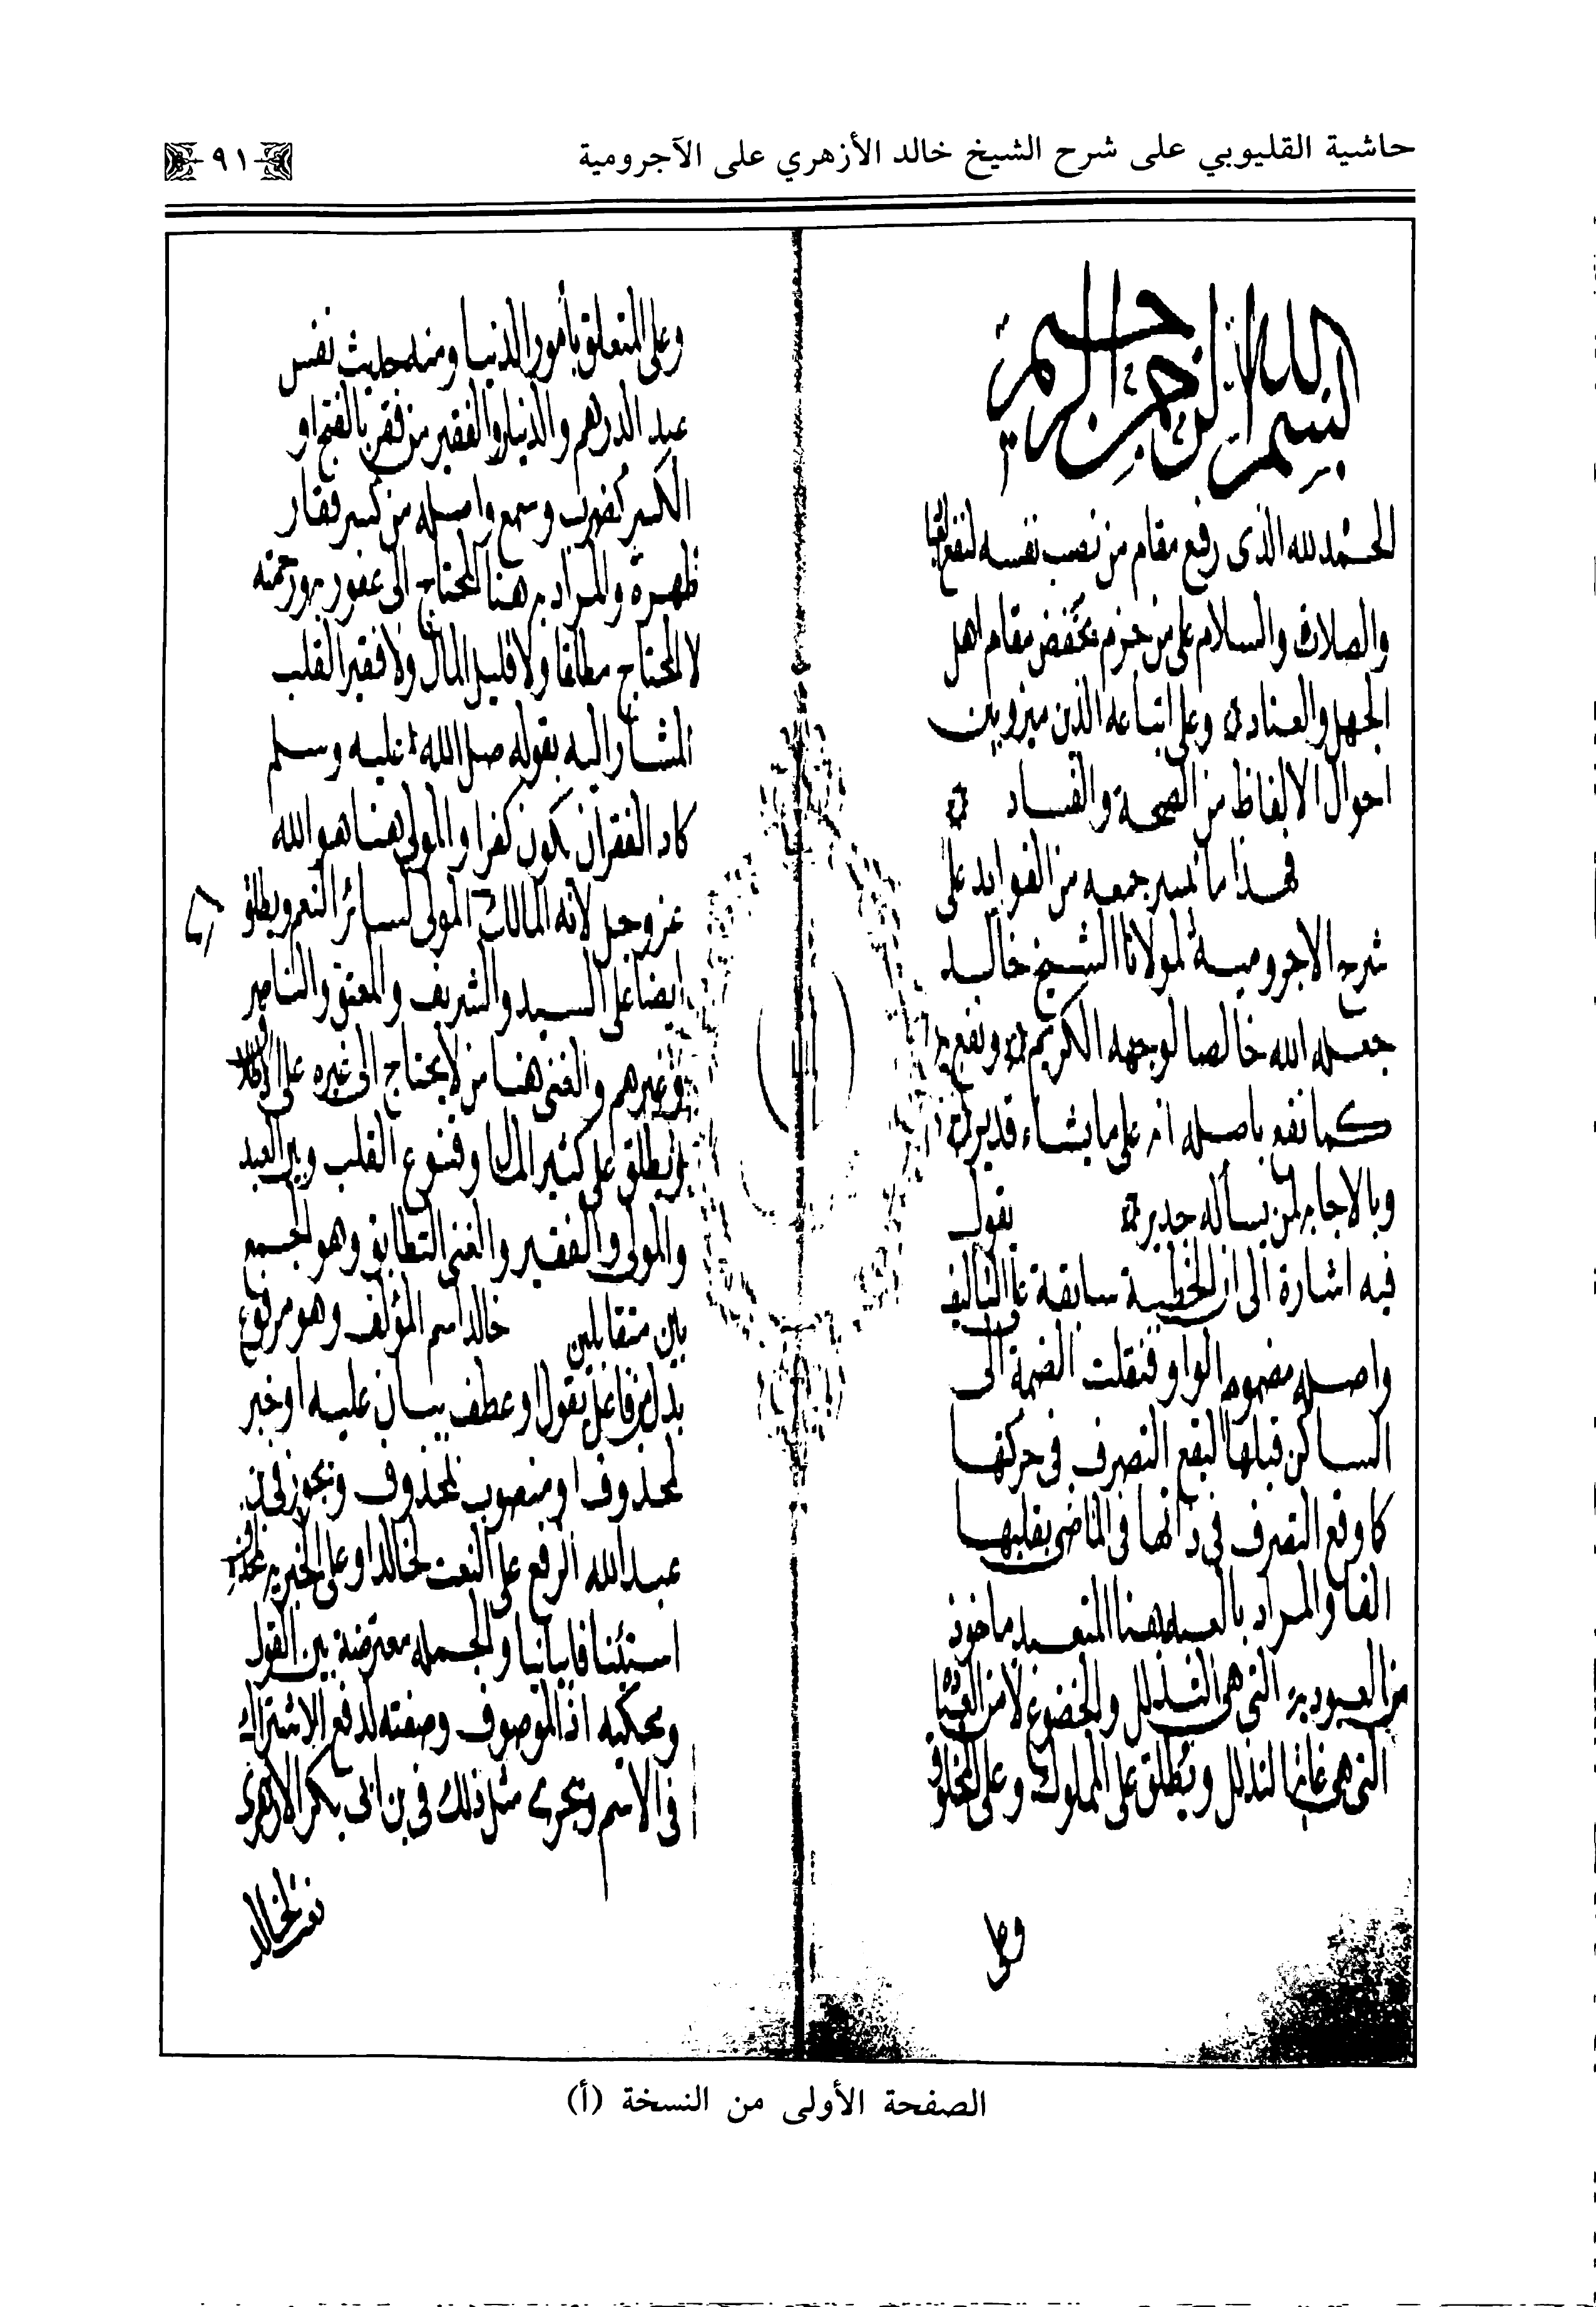 حاشية القليوبي على شرح الشيخ خالد الأزهري على الآجرومية
٩١
بسم الله الرحمن الرحيم
الحمد لله الذى رفع مقام من نصب نفسه لنفع
والصلاة والسلام على من جزم بخفض مقام اهل
الجهل والعناد وعلى اتباعه الذين ميزو بين
احوال الالفاظ من الصحة والفساد
فهذا ما تيسر جمعه من الفوايد على
شرح الاجرومية لمولانا الشيخ خالد
جعله الله خالصا لوجهه الكريم ونفع به
كما نفع باصله انه على ما يشاء قدير
وبالاجابه لمن يساله جدير يقول
فيه اشارة الى ان الخطبة سابقة على التاليف
واصله مضموم الواو فنقلت الضمة الى
الساكن قبلها ليقع التصرف فى حركتها
كما وقع التصرف فى ذاتها فى الماضى بقلبها
الفا والمراد بالعبد هنا المتعبد ماخوذ
من العبوديه التى هى التذلل والخضوع لا من العبادة
التى هى غاية التذلل ويطلق على المملوك وعلى المخلوق
وعلى المتعلق بأمور الدنيا ومنه حديث نفس
عبد الدرهم والدينار والفقير من فقر بالفتح او
الكسر كضرب وسمع واصله من كسر فقار
ظهره والمراد به هنا المحتاج الى عفو ربه ورحمته
لا المحتاج مطلقا ولا قليل المال ولا فقير القلب
المشار اليه بقوله صلى الله عليه وسلم
كاد الفقر ان يكون كفرا والمولى هنا هو الله
عز وجل لانه المالك المولى لسائر النعم ويطلق
ايضا على السيد والشريف والمعتق والناصر
وغيرهم والغنى هنا من لا يحتاج الى غيره على الاطلاق
ويطلق على كثير المال وقنوع القلب وبين العبد
والمولى والفقير والغنى التطابق وهو الجمع
بين متقابلين خالد اسم المؤلف وهو مرفوع
بدل من فاعل يقول او عطف بيان عليه او خبر
لمحذوف او منصوب بمحذوف ويجوز فى ابن
عبد الله الرفع على النعت لخالد او على الخبريه لمحذوف
استئنافا بيانيا والجمله معترضة بين القول
ومحكيه اذ الموصوف وصفته لدفع الاشتراك
فى الاسم ويجرى مثل ذلك فى بن ابى بكر الازهرى
نعت لخالد
الصفحة الأولى من النسخة (أ)